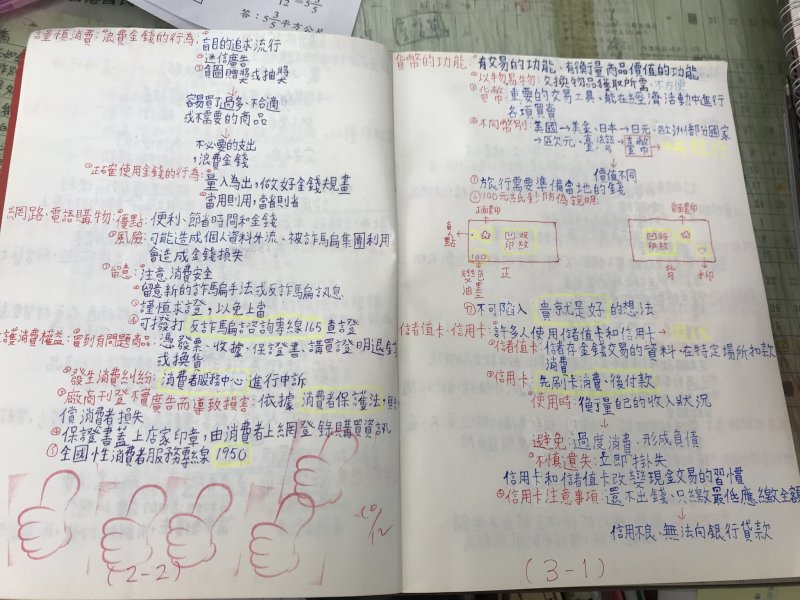 12 = 5
答：5 3/5 平方公尺
謹慎消費：浪費金錢的行為：
盲目的追求流行
迷信廣告
貪圖贈獎或抽獎
↓
容易買了過多、不合適
或不需要的商品
↓
不必要的支出
，浪費金錢
正確使用金錢的行為：
量入為出，做好金錢規畫
當用則用，當省則省
網路、電話購物：優點：便利、節省時間和金錢
風險：可能造成個人資料外流、被詐騙集團利用
會造成金錢損失
留意：注意消費安全
留意新的詐騙手法或反詐騙訊息
謹慎求證，以免上當
④可撥打 反詐騙諮詢專線165 查證
護消費權益：買到有問題商品：憑發票、收據、保證書、購買證明退
或換貨
②發生消費糾紛：消費者服務中心 進行申訴
③廠商刊登不實廣告而導致損害：依據 消費者保護法，賠
償消費者損失
④保證書蓋上店家印章，由消費者上網登錄購買資訊
⑤全國性消費者服務專線 1950
10/12
(2-2)
貨幣的功能：有交易的功能、有衡量商品價值的功能
②以物易物：交換物品獲取所需，不方便
③貨幣：重要的交易工具，能在經濟活動中進行
各項買賣
④不同幣別：美國→美金、日本→日元、歐洲部分國家
→歐元、臺灣→臺幣
價值不同
⑤旅行需要準備當地的錢
⑥100元紙鈔防偽說明：
正面套印
背面套印
盲人點
凹版印紋
100
凹版印紋
變色油墨
正
背
水印
⑦不可陷入 貴就是好 的想法
儲值卡、信用卡：許多人使用儲值卡和信用卡→
儲值卡：儲存金錢交易的資料，在特定場所扣款
消費
信用卡：先刷卡消費，後付款
使用時：衡量自己的收入狀況
↓
避免：過度消費、形成負債
不慎遺失：立即掛失
信用卡和儲值卡改變現金交易的習慣
信用卡注意事項：還不出錢、只繳最低應繳金額
↓
信用不良、無法向銀行貸款
(3-1)